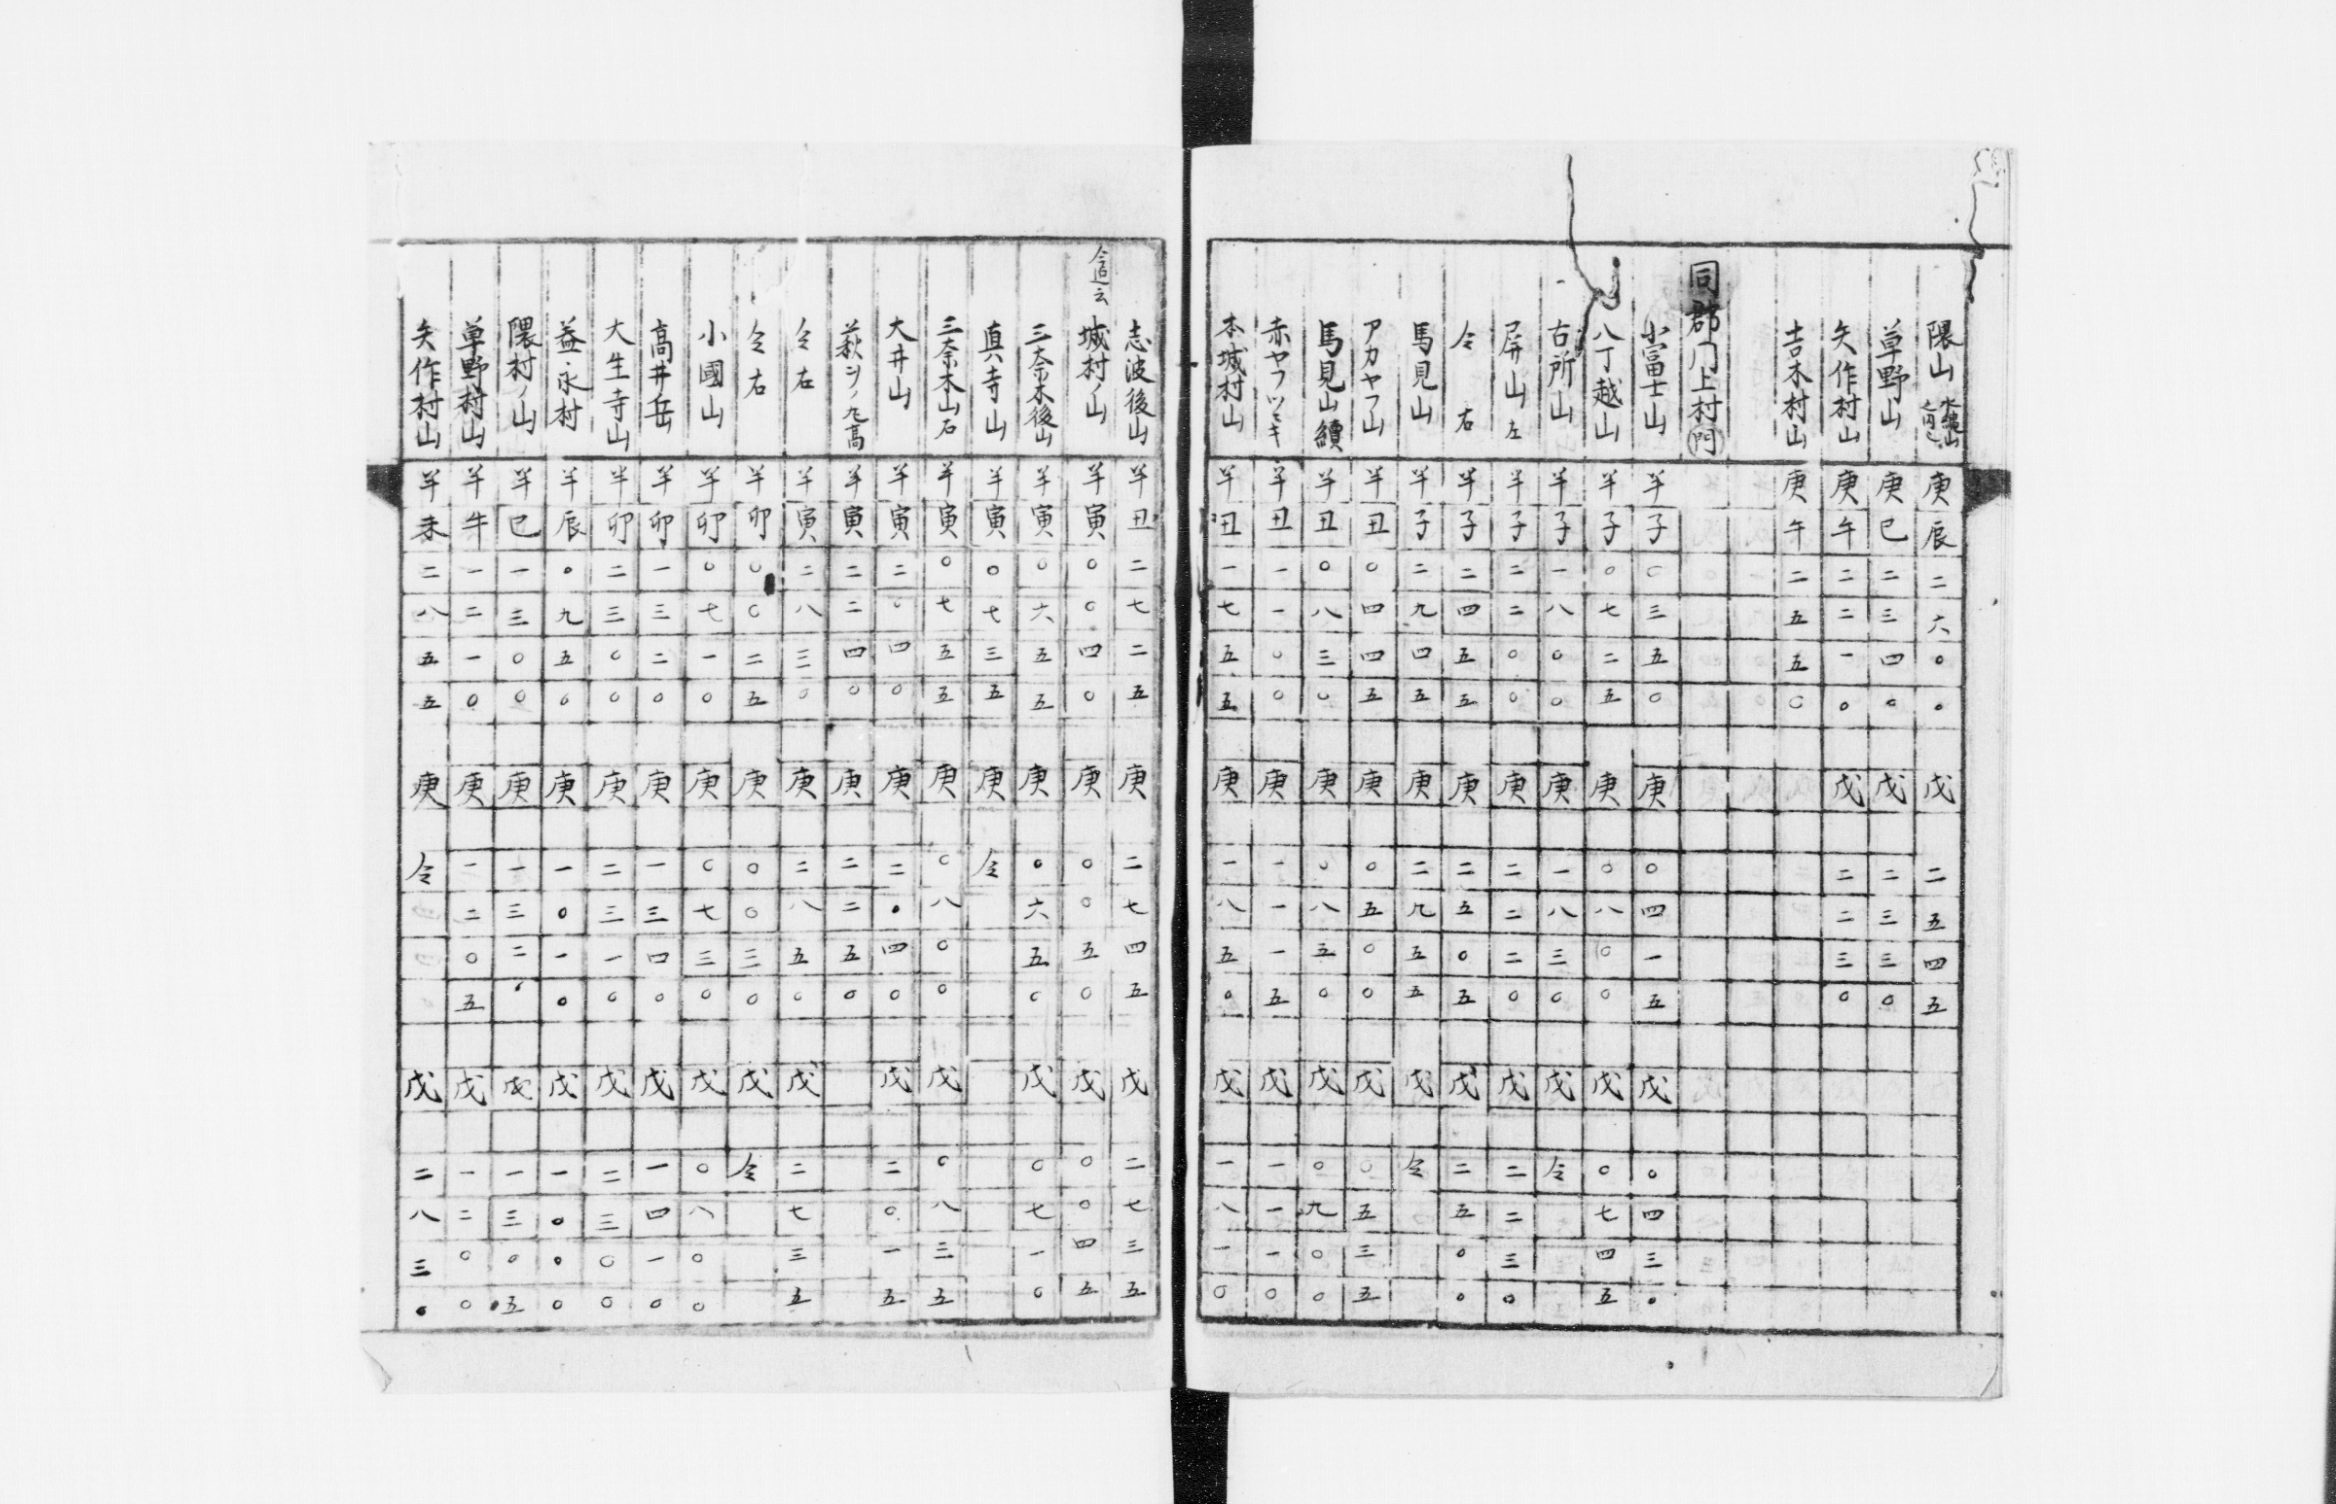 隈山 庚辰二六〇〇 戊二五四五
草野山 庚巳二三四〇 戊二三三〇
矢作村山 庚午二二一〇 戊二二三〇
吉木村山 庚午二五五〇
同郡门上村門
小冨士山 子〇三五〇 庚〇四一五 戊〇四三〇
八丁越山 子〇七二五 庚〇八〇〇 戊〇七四五
古所山 子一八〇〇 庚一八三〇 戊仝
屏山左 子二二〇〇 庚二二二〇 戊二二三〇
仝右 子二四五五 庚二五〇五 戊二五〇〇
馬見山 子二九四五 庚二九五五 戊仝
アカヤフ山 丑〇四四五 庚〇五〇〇 戊〇五三五
馬見山續 丑〇八三〇 庚〇八五〇 戊〇九〇〇
赤ヤフツヽキ 丑一一〇〇 庚一一一五 戊一一一〇
本城村山 丑一七五五 庚一八五〇 戊一八一〇
志波後山 丑二七二五 庚二七四五 戊二七三五
城村ノ山 寅〇〇四〇 庚〇〇五〇 戊〇〇四五
三奈木後山 寅〇六五五 庚〇六五〇 戊〇七一〇
真寺山 寅〇七三五 庚仝
三奈木山石 寅〇七五五 庚〇八〇〇 戊〇八三五
大井山 寅二〇四〇 庚二〇四〇 戊二〇一五
萩ノ九高 寅二二四〇 庚二二五〇
仝右 寅二八三〇 庚二八五〇 戊二七三五
仝右 卯〇〇二五 庚〇〇三〇 戊仝
小國山 卯〇七一〇 庚〇七三〇 戊〇八〇〇
高井岳 卯一三二〇 庚一三四〇 戊一四一〇
大生寺山 卯二三〇〇 庚二三一〇 戊二三〇〇
益永村 辰〇九五〇 庚一〇一〇 戊一〇〇〇
隈村ノ山 巳一三〇〇 庚一三二〇 戊一三〇五
草野村山 午一二一〇 庚一二〇五 戊一二〇〇
矢作村山 未二八五五 庚仝 戊二八三〇